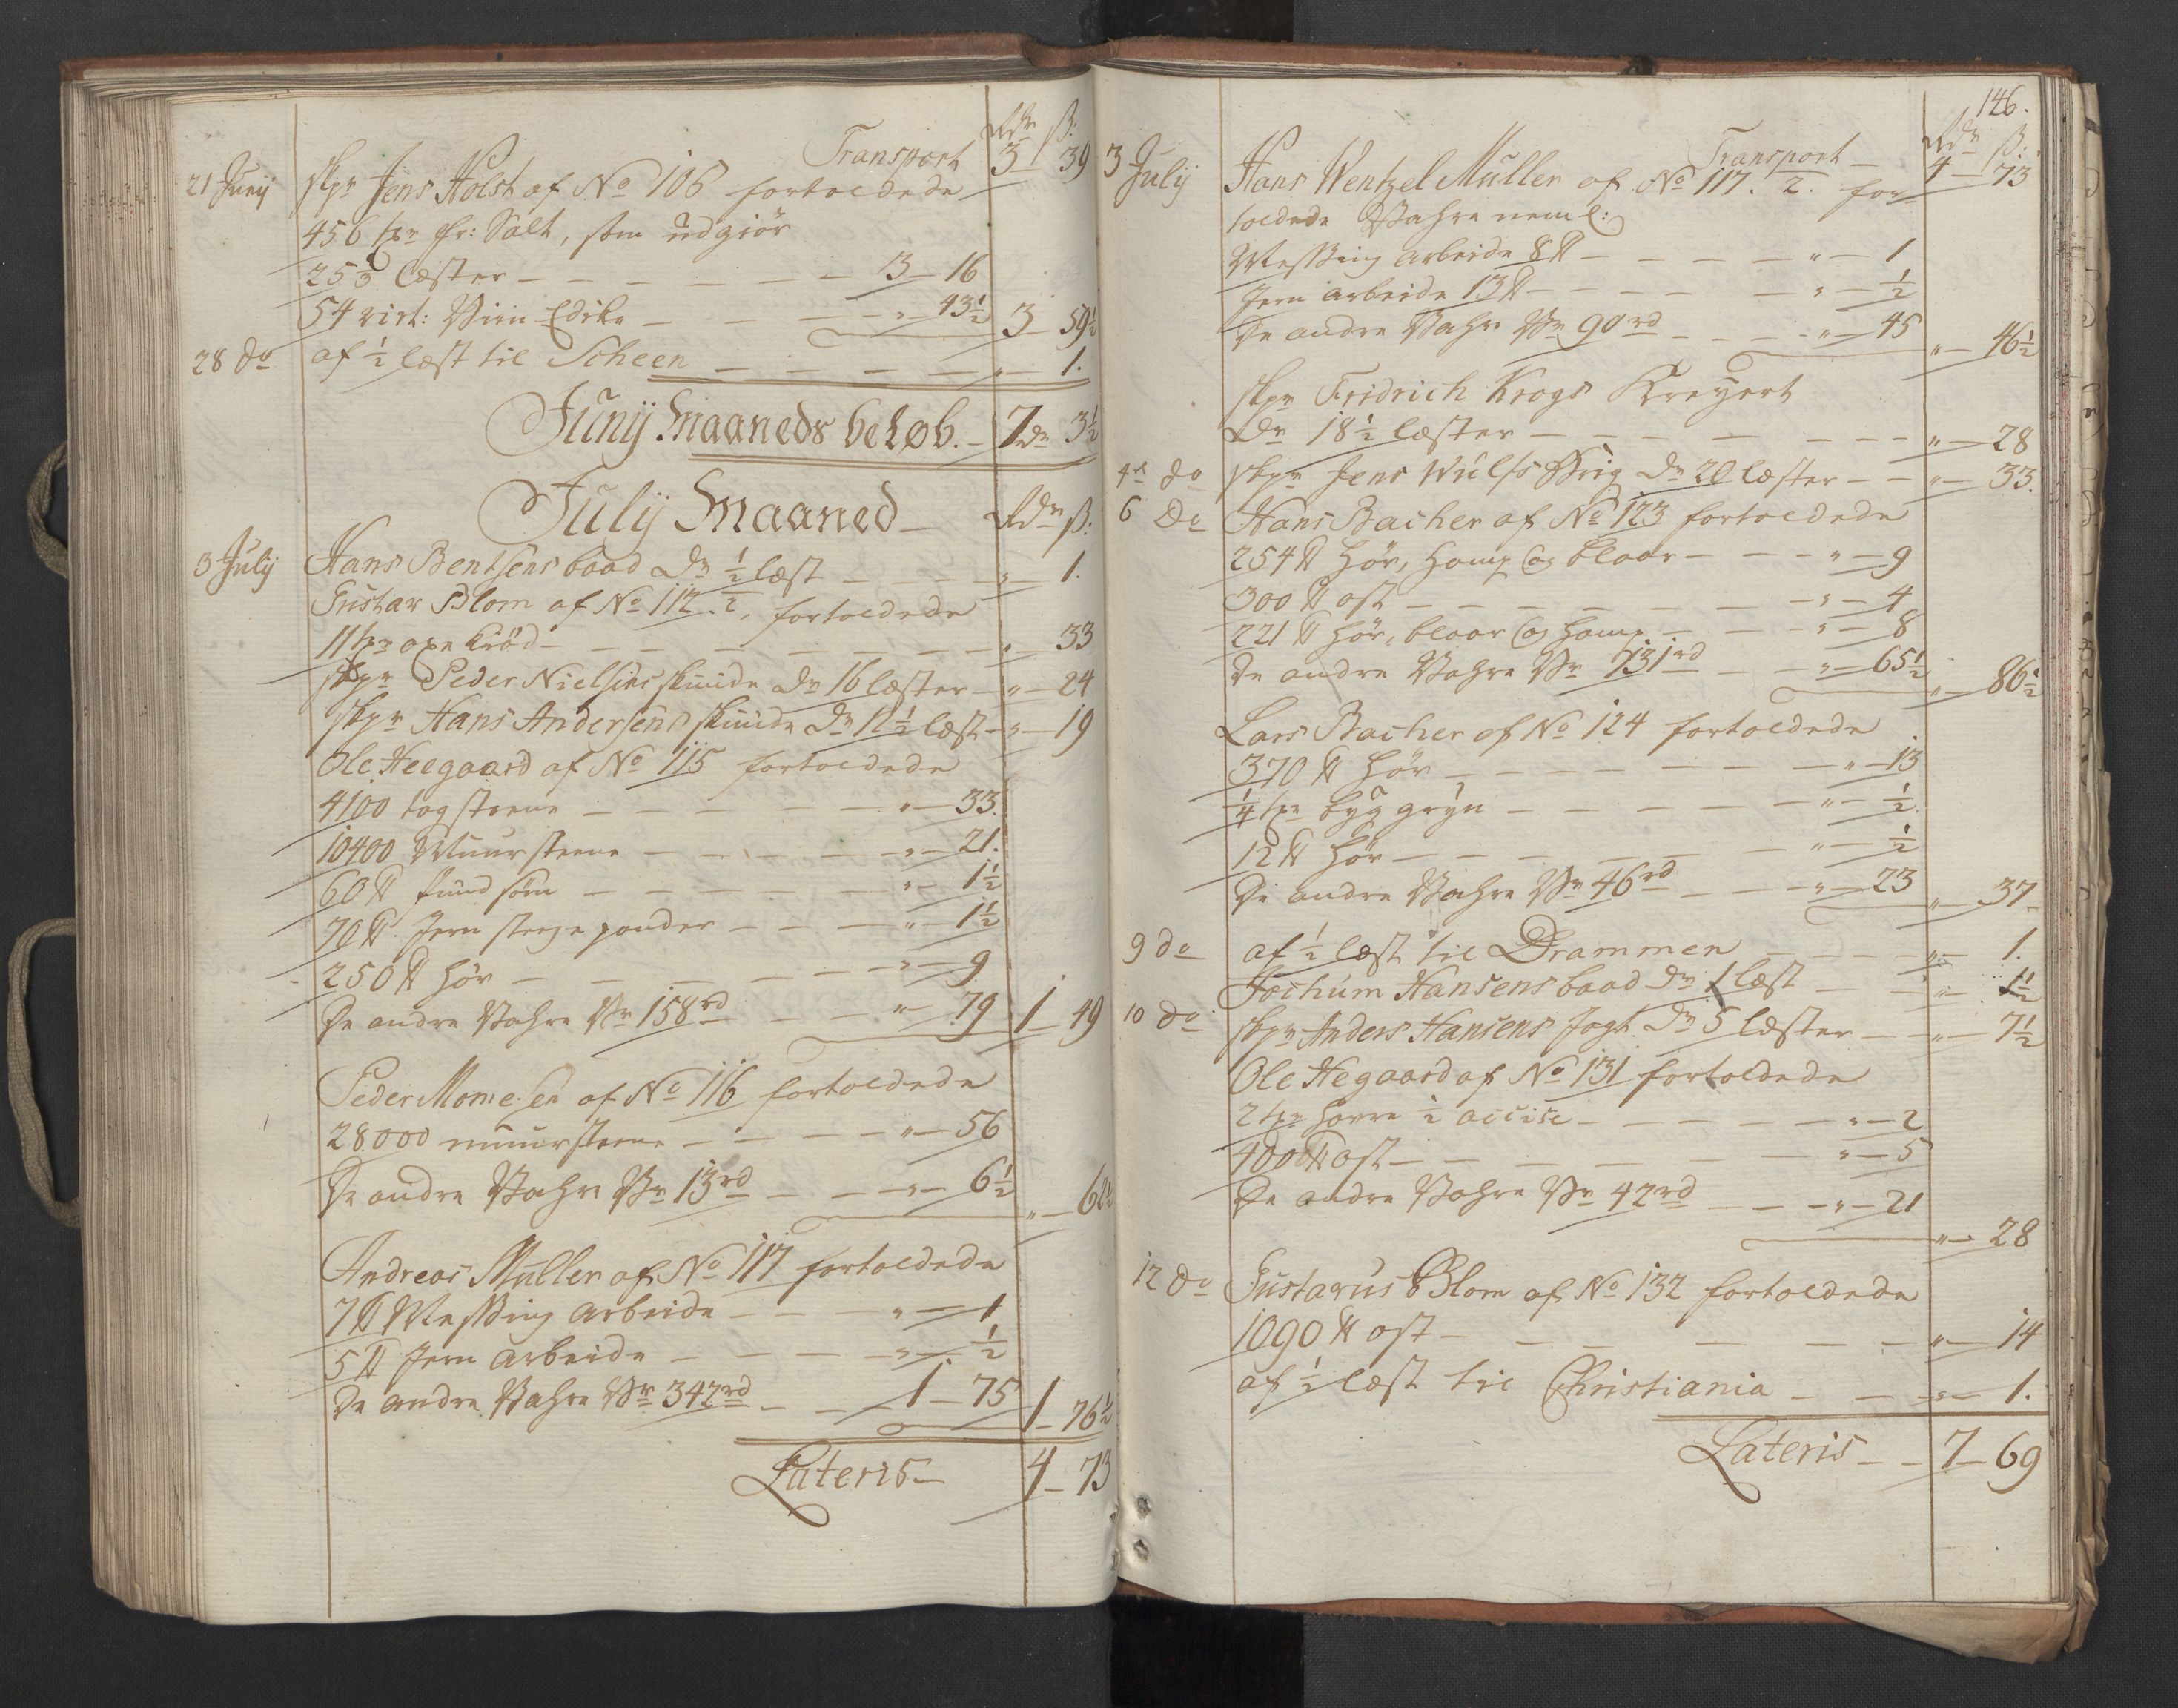 Rdr ß:
Transport 3 39
21 Junij Skpr Jens Holst af No 106 fortoldede
456 tr fr: Salt, som udgiør
25⅓ Læster – – – – – – 3 – 16
54 virt: Viin Edike – – – „ – 43½ 3 – 59½
28 do af ½ læst til Scheen – – – – „ – 1.
Junij Maaneds beløb. – 7 dr 3½
Julij Maaned – Rdr ß:
3 Julij Hans Bentsens baad dr ½ læst – – – „ – 1.
Gustav Blom af No 112.½, fortoldede
11 tr oxe kiød – – – – – – „ – 33
Skpr Peder Nielsens skuude dr 16 læster – „ – 24
Skpr Hans Andersens skuude dr 12½ læst – „ – 19
Ole Heegaard af No 115 fortoldede
4100 tagsteene – – – – – „ – 33.
10400 Muursteene – – – – – „ – 21.
60 ℔ søm – – – – – „ – 1½
70 ℔ Jern stege pander – – – „ – 1½
250 ℔ hør – – – – – „ – 9
De andre Vahre Vr 158 rd – – – „ – 79 1 – 49
Peder Momesen af No 116 fortoldede
28000 muursteene – – – – „ – 56
De andre Vahre Vr 13 rd – – – „ – 6½ „ – 62½
Andreas Müller af No 117 fortoldede
7 ℔ Messing arbeide – – – „ – 1
5 ℔ Jern arbeide – – – – „ – ½
De andre Vahre Vr 342 rd – – 1 – 75 1 – 76½
Lateris – 4 – 73
146.
Rdr ß:
Transport – 4 – 73
3 Julij Hans Wentzel Müller af No 117.½. for-
toldede Vahre neml:
Messing arbeide 8 ℔ – – – – – „ – 1
Jern arbeide 13 ℔ – – – – – „ – ½
De andre Vahre Vr 90 rd – – – „ – 45 „ – 46½
Skpr Fridrich Krogs Kreyert
dr 18½ læster – – – – – – – „ – 28
4de do Skpr Jens Wulfs Brig dr 20 læster – – „ – 33.
6 Do Hans Bacher af No 123 fortoldede
254 ℔ hør, hamp og blaar – – – „ – 9
300 ℔ ost – – – – – – – „ – 4
221 ℔ hør, blaar og hamp – – – „ – 8
De andre Vahre Vr 131 rd – – „ – 65½ „ – 86½
Lars Bacher af No 124 fortoldede
370 ℔ hør – – – – – – „ – 13
¼ tr byg gryn – – – – – „ – ½.
12 ℔ hør – – – – – – „ – ½
De andre Vahre Vr 46 rd – – – „ – 23 „ – 37
9 do af ½ læst til Drammen – – – – „ – 1.
Jochum Hansens baad dr 1 læst – – „ – 1½
10 Do Skpr Anders Hansens Jagt dr 5 læster – – „ – 7½
Ole Hegaard af No 131 fortoldede
2 tr havre ½ accise – – – – – „ – 2
400 ℔ ost – – – – – – „ – 5
De andre Vahre Vr 42 rd – – – „ – 21
„ – 28
12 Do Gustavus Blom af No 132 fortoldede
1090 ℔ ost – – – – – – – „ – 14
af ½ læst til Christiania – – „ – 1.
Lateris – – 7 – 69